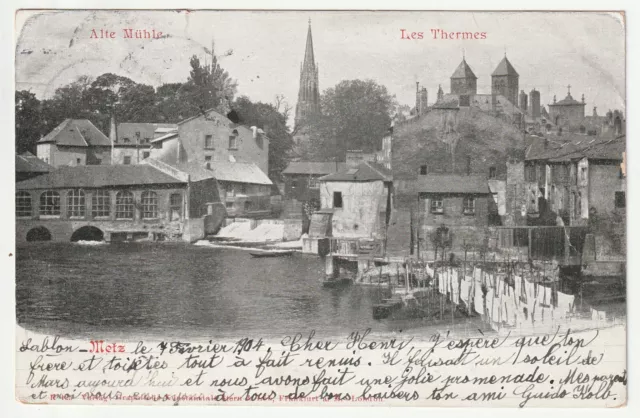 Alte Mühle
Les Thermes
Sablon - Metz le 7 Février 1904. Cher Henri, J'espère que ton
frère et toi êtes tout à fait remis. Il faisait un soleil de
Mars aujourd'hui et nous avons fait une jolie promenade. Mes parents
et moi vous à tous de bons baisers ton ami Guido Kolb.
Frankfurt a. M. London